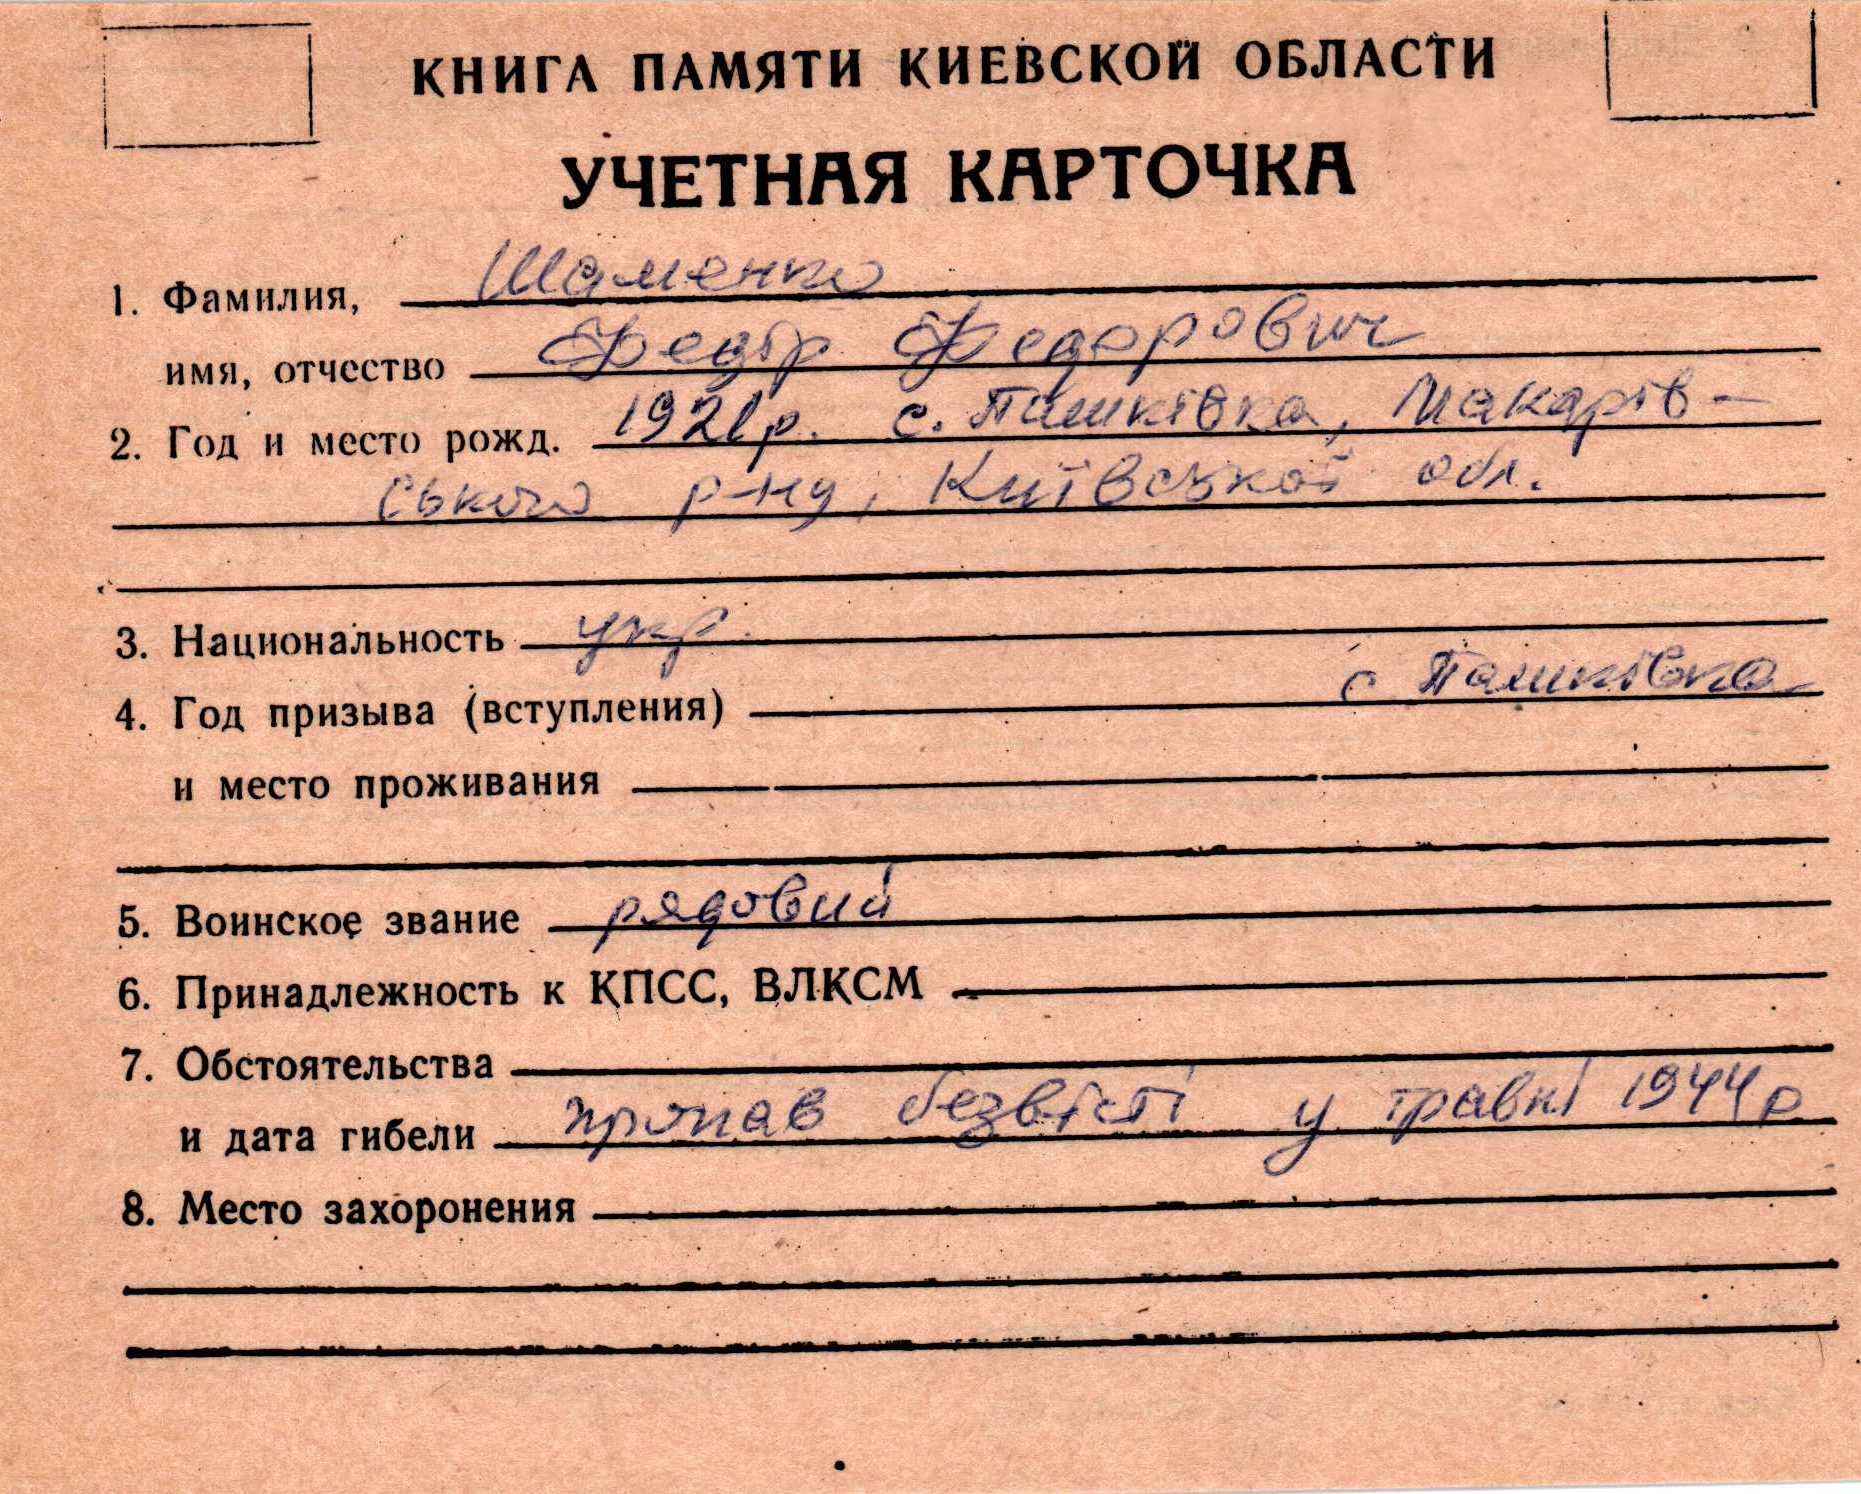 КНИГА ПАМЯТИ КИЕВСКОЙ ОБЛАСТИ
УЧЕТНАЯ КАРТОЧКА
1. Фамилия, Шаменко
имя, отчество Федір Федорович
2. Год и место рожд. 1921р. с. Пашківка, Макарів-
ського р-ну, Київської обл.
3. Национальность укр.
4. Год призыва (вступления) с Пашківка
и место проживания
5. Воинское звание рядовий
6. Принадлежность к КПСС, ВЛКСМ
7. Обстоятельства
и дата гибели пропав безвісті у травні 1944р
8. Место захоронения